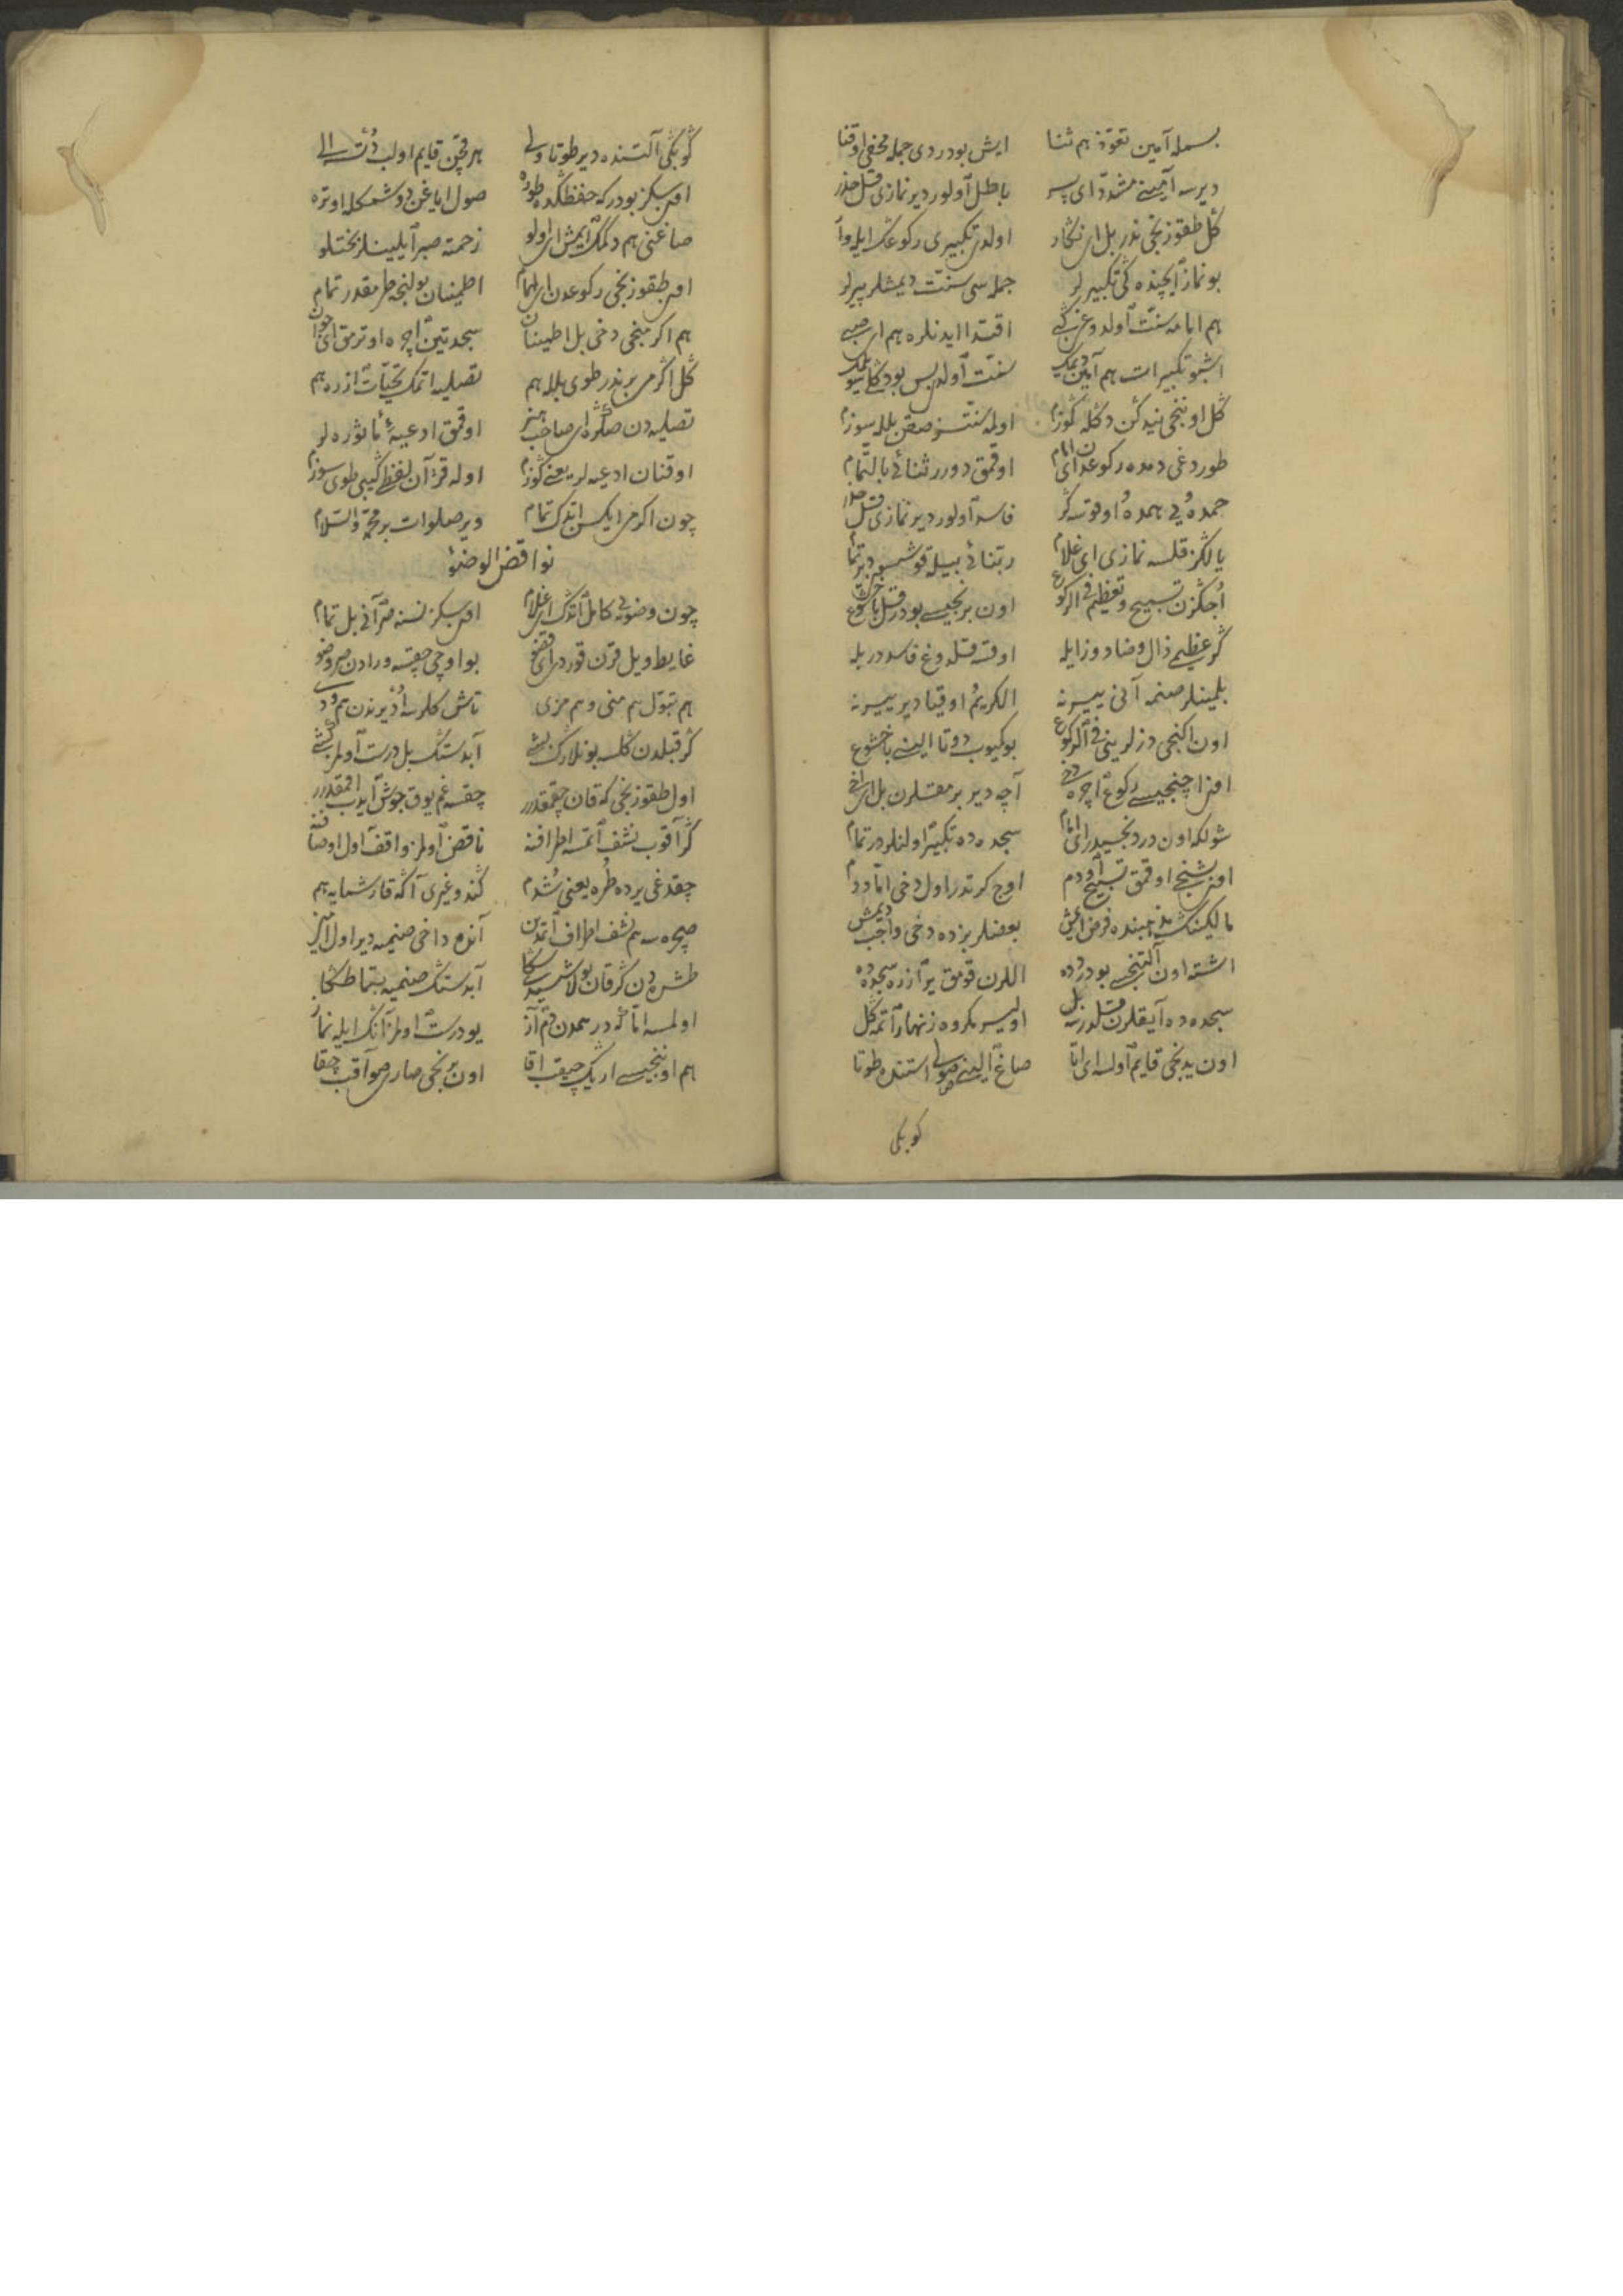 بسمله آمین تعوّذ هم ثنا ایش بودردی جمله مخفی اوقنا
دیرسه آمینی مشدّد ای پسر باطل اولور دیر نمازی قل حذر
کل طقوزنجی ندر بل ای نکار اولدی تکبیری رکوعک ایله وا
بو نماز ایچنده کی تکبیرلر جمله سی سنّت دیمشلر پیرلر
هم امامه سنّت اولدوغن کی اقتدا ایدنلره هم ای صبی
اشبو تکبیرات هم آمین دیمک سنّت اولدی بس بودکلی
کل اوننجی نیدکن دکله کوزم اولدی سنّت بلله سوزم
طوردغی دمده رکوعدن ای امام اوقمق دورر ثنائی بالتّمام
حمدهُ یی همدهُ اوقوسه کر فاسد اولور دیر نمازی قل حذر
یالکز قلسه نمازی ای غلام ربّنائی بیله قوشسون دیر تمام
تسبیح و تعظیم فی الرکوع اون برنجیسی بودر قل با خشوع
کر عظیمی ذال و ضاد و زایله اوقسه قلدوغی فاسددر بله
بلمینلر صنمه آنی ییرنه الکریمُ اوقیا دیر ییرنه
اون اکنجی دزلرینی فی الرکوع بوکیوب دوتا الینی با خشوع
اون اچنجیسی رکوع اچره ددی آچه دیر برمقلرن بل ای اخی
شولکه اون دردنجیسیدر ای امام سجده ده تکبیر اولنلردر تمام
اون بشنجی اوقمق تسبیح اوچ کرتدر اول دخی
مالکینک مذهبنده فرض ایمش بعضلر بزده دخی واجب دیمش
اشته اون التنجی بودر دده اللرن قومق یر ازره سجده ده
سجده ده آیقلرن قلدرسه بل اولیسر مکروه زنهار اتمه کل
اون یدنجی قایم اولسه ای اتا صاغ الینی صولی استنده طوتا
کوبکی
کوبکی آلتنده دیر طوتا ولی هر قچن قایم اولب دُتسه الی
اون سکز بودر که حفظکده طوره صول ایاغن دوشمکله اوتره
صاغنی هم دکمک ایمش ای اولو زحمته صبر ایلینلر بختلو
اون طقوزنجی رکوعدن ای همام اطمینان بولنجه طرمقدر تمام
هم اکرمنجی دخی بل اطمینان سجدتین اچره اوترمق ای جوان
کل اکرمی برندر طوی بلله هم تصلیه اتمک تحیّات ازره هم
تصلیه دن صکره ای صاحب هنر اوقمق ادعیهٔ مأثوره لر
اوقنان ادعیه لر یعنی کوزم اوله قرآن لفظی کیبی طوی سوزم
چون اکرمی ایکسن اتدک تمام ویر صلوات بر محمّد والسّلام
نواقض الوضوٴ
چون وضویی کامل اتدک ای غلام اون سکز نسنه صر آنی بل تمام
غایط و یل قرن قوردی ای بو اوچی چقسه ورادن صر وضو
هم تبوّل هم منی و هم مزی تاش کلرسه اُذیرندن هم ودی
کر قبلدن کلسه بونلارک بشی آبدستک بل درست اولمز کشی
اول طقوزنجی که قان چقمقدر چقسه غم یوق جوش ایدب اقمقدر
کر آقوب نشف اتمسه اطرافنه ناقض اولمز واقف اول اوصافنه
چقدغی یرده طُره یعنی شُدم کندو غیری آکه قارشمایه هم
صچره سه هم نشف اطراف اتمدن آنده داخی صنمیه دیر اول
طشره دن کر قان بولاشسیدی سکا آبدستک صنمیه
اولمسه امّا که در همدن دم آز یو درست اولمز آنک ایله نماز
هم اوننجیسی ارینک چیقب اقا اون برنجی صاری صو آقب چقا